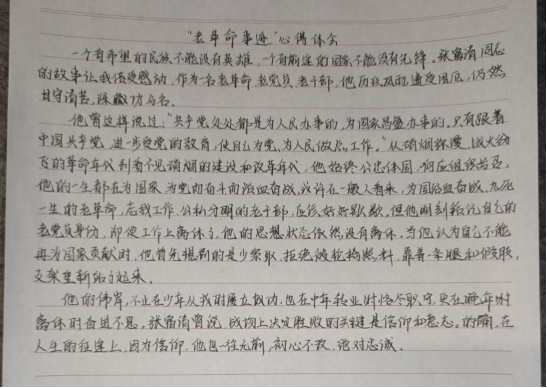 “老革命事迹”心得体会
一个有希望的民族不能没有英雄，一个有前途的国家不能没有先锋。张富清同志
的故事让我倍受感动，作为一名老革命、老党员、老干部，他历经风雨，遭受困厄，仍然
甘守清苦，深藏功与名。
他曾这样说过：“共产党处处都是为人民办事的，为国家昌盛办事的。只有跟着
中国共产党，进一步受党的教育，使自己为党、为人民做点工作。”从硝烟弥漫、战火纷
飞的革命年代到看不见硝烟的建设和改革年代，他始终公忠体国，响应组织号召，
他的一生都在为国家、为党而奋斗而浴血奋战，或许在一般人看来，为国浴血奋战，九死
一生的老革命，忘我工作，公私分明的老干部，应该好好歇歇。但他时刻铭记自己的
老党员身份，即使工作上离休了，他的思想状态依然没有离休，当他认为自己不能
再为国家贡献时，他首先想到的是少索取，拒绝被轮椅照料，靠着一条腿和假肢，
支架重新站了起来。
他的伟岸，不止在少年从戎时屡立战功，也在中年转业时恪尽职守，更在晚年时
离休时奋进不息。张富清曾说，战场上决定胜败的关键是信仰和意志。的确，在
人生的征途上，因为信仰，他也一往无前，初心不改，绝对忠诚。